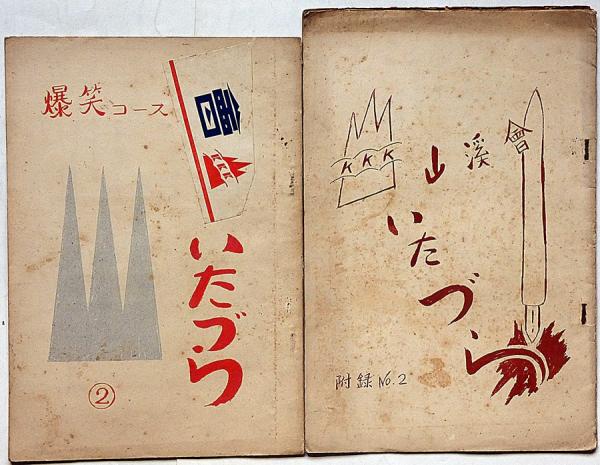 爆笑コース
會
KKK
いたづら
②
KKK
會
溪
山
いたづら
附録 No.2